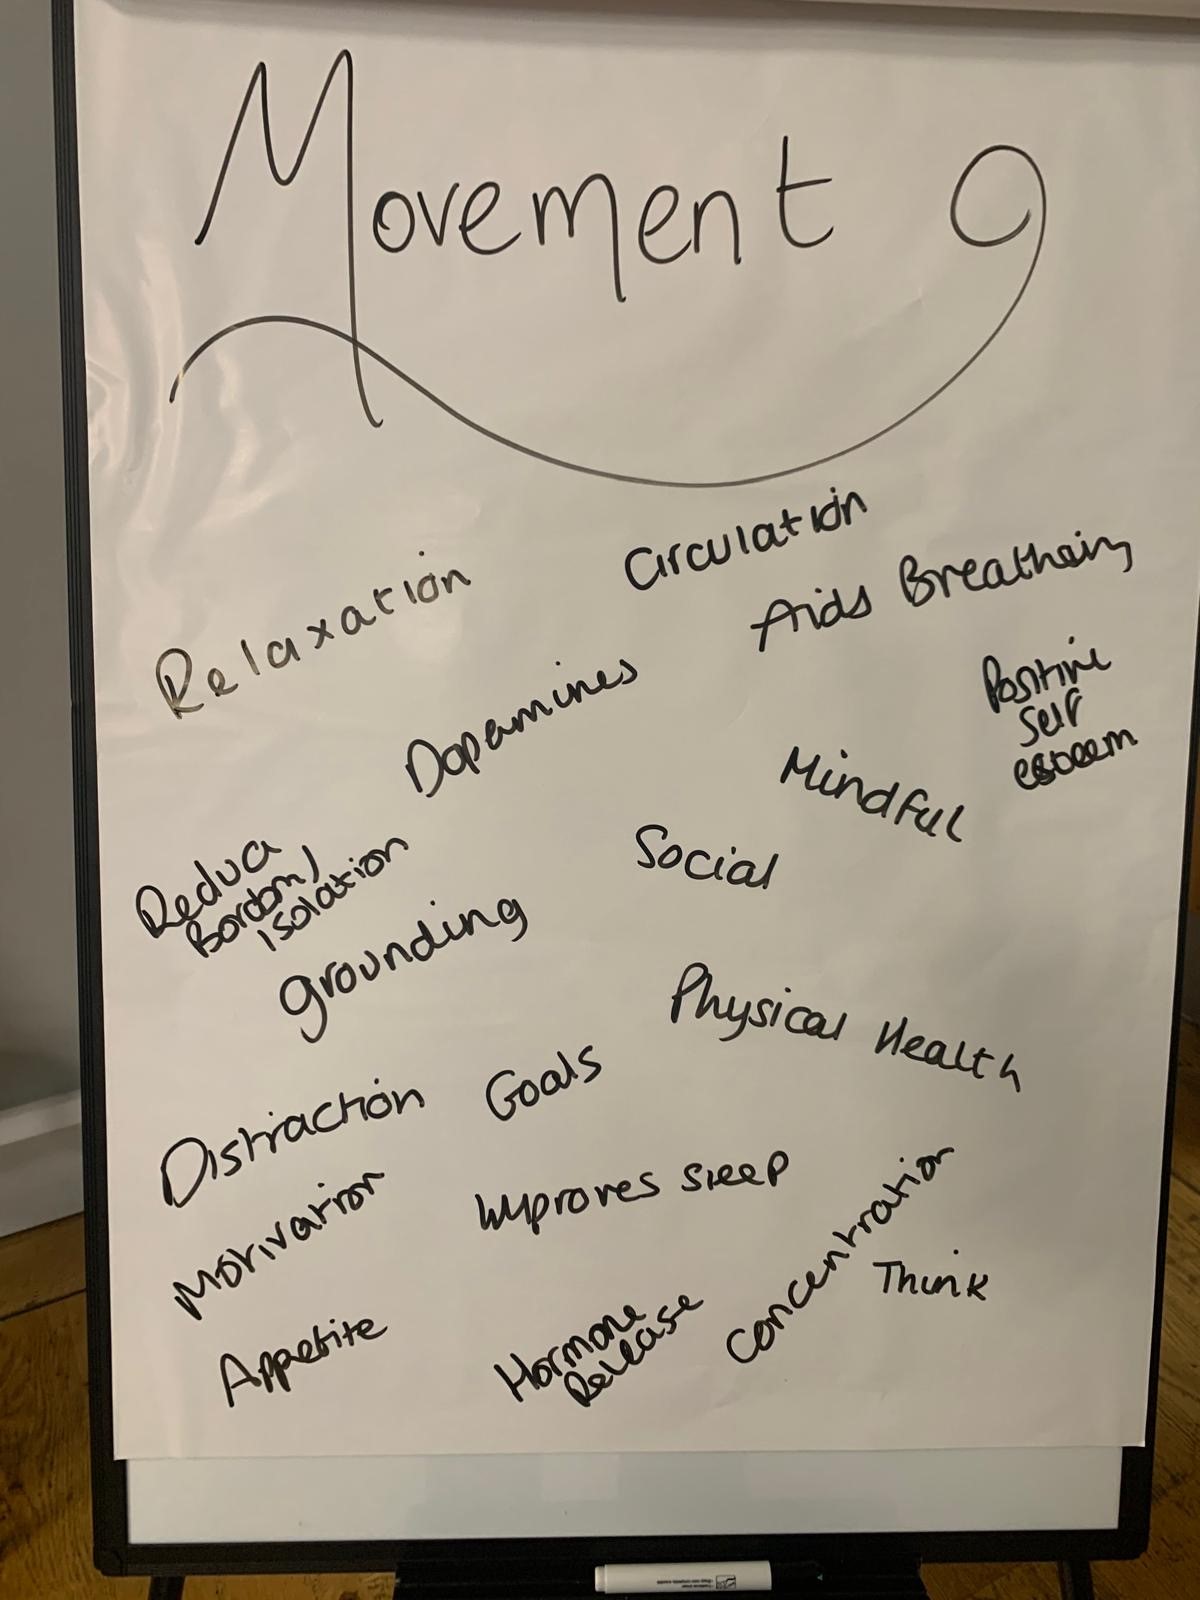 Movement
Circulation
Relaxation
Aids Breathing
Dopamines
Positive
Self
esteem
Mindful
Reduce
Boredom/
Isolation
Social
grounding
Physical Health
Distraction
Goals
Motivation
Improves sleep
Concentration
Think
Appetite
Hormone
Release